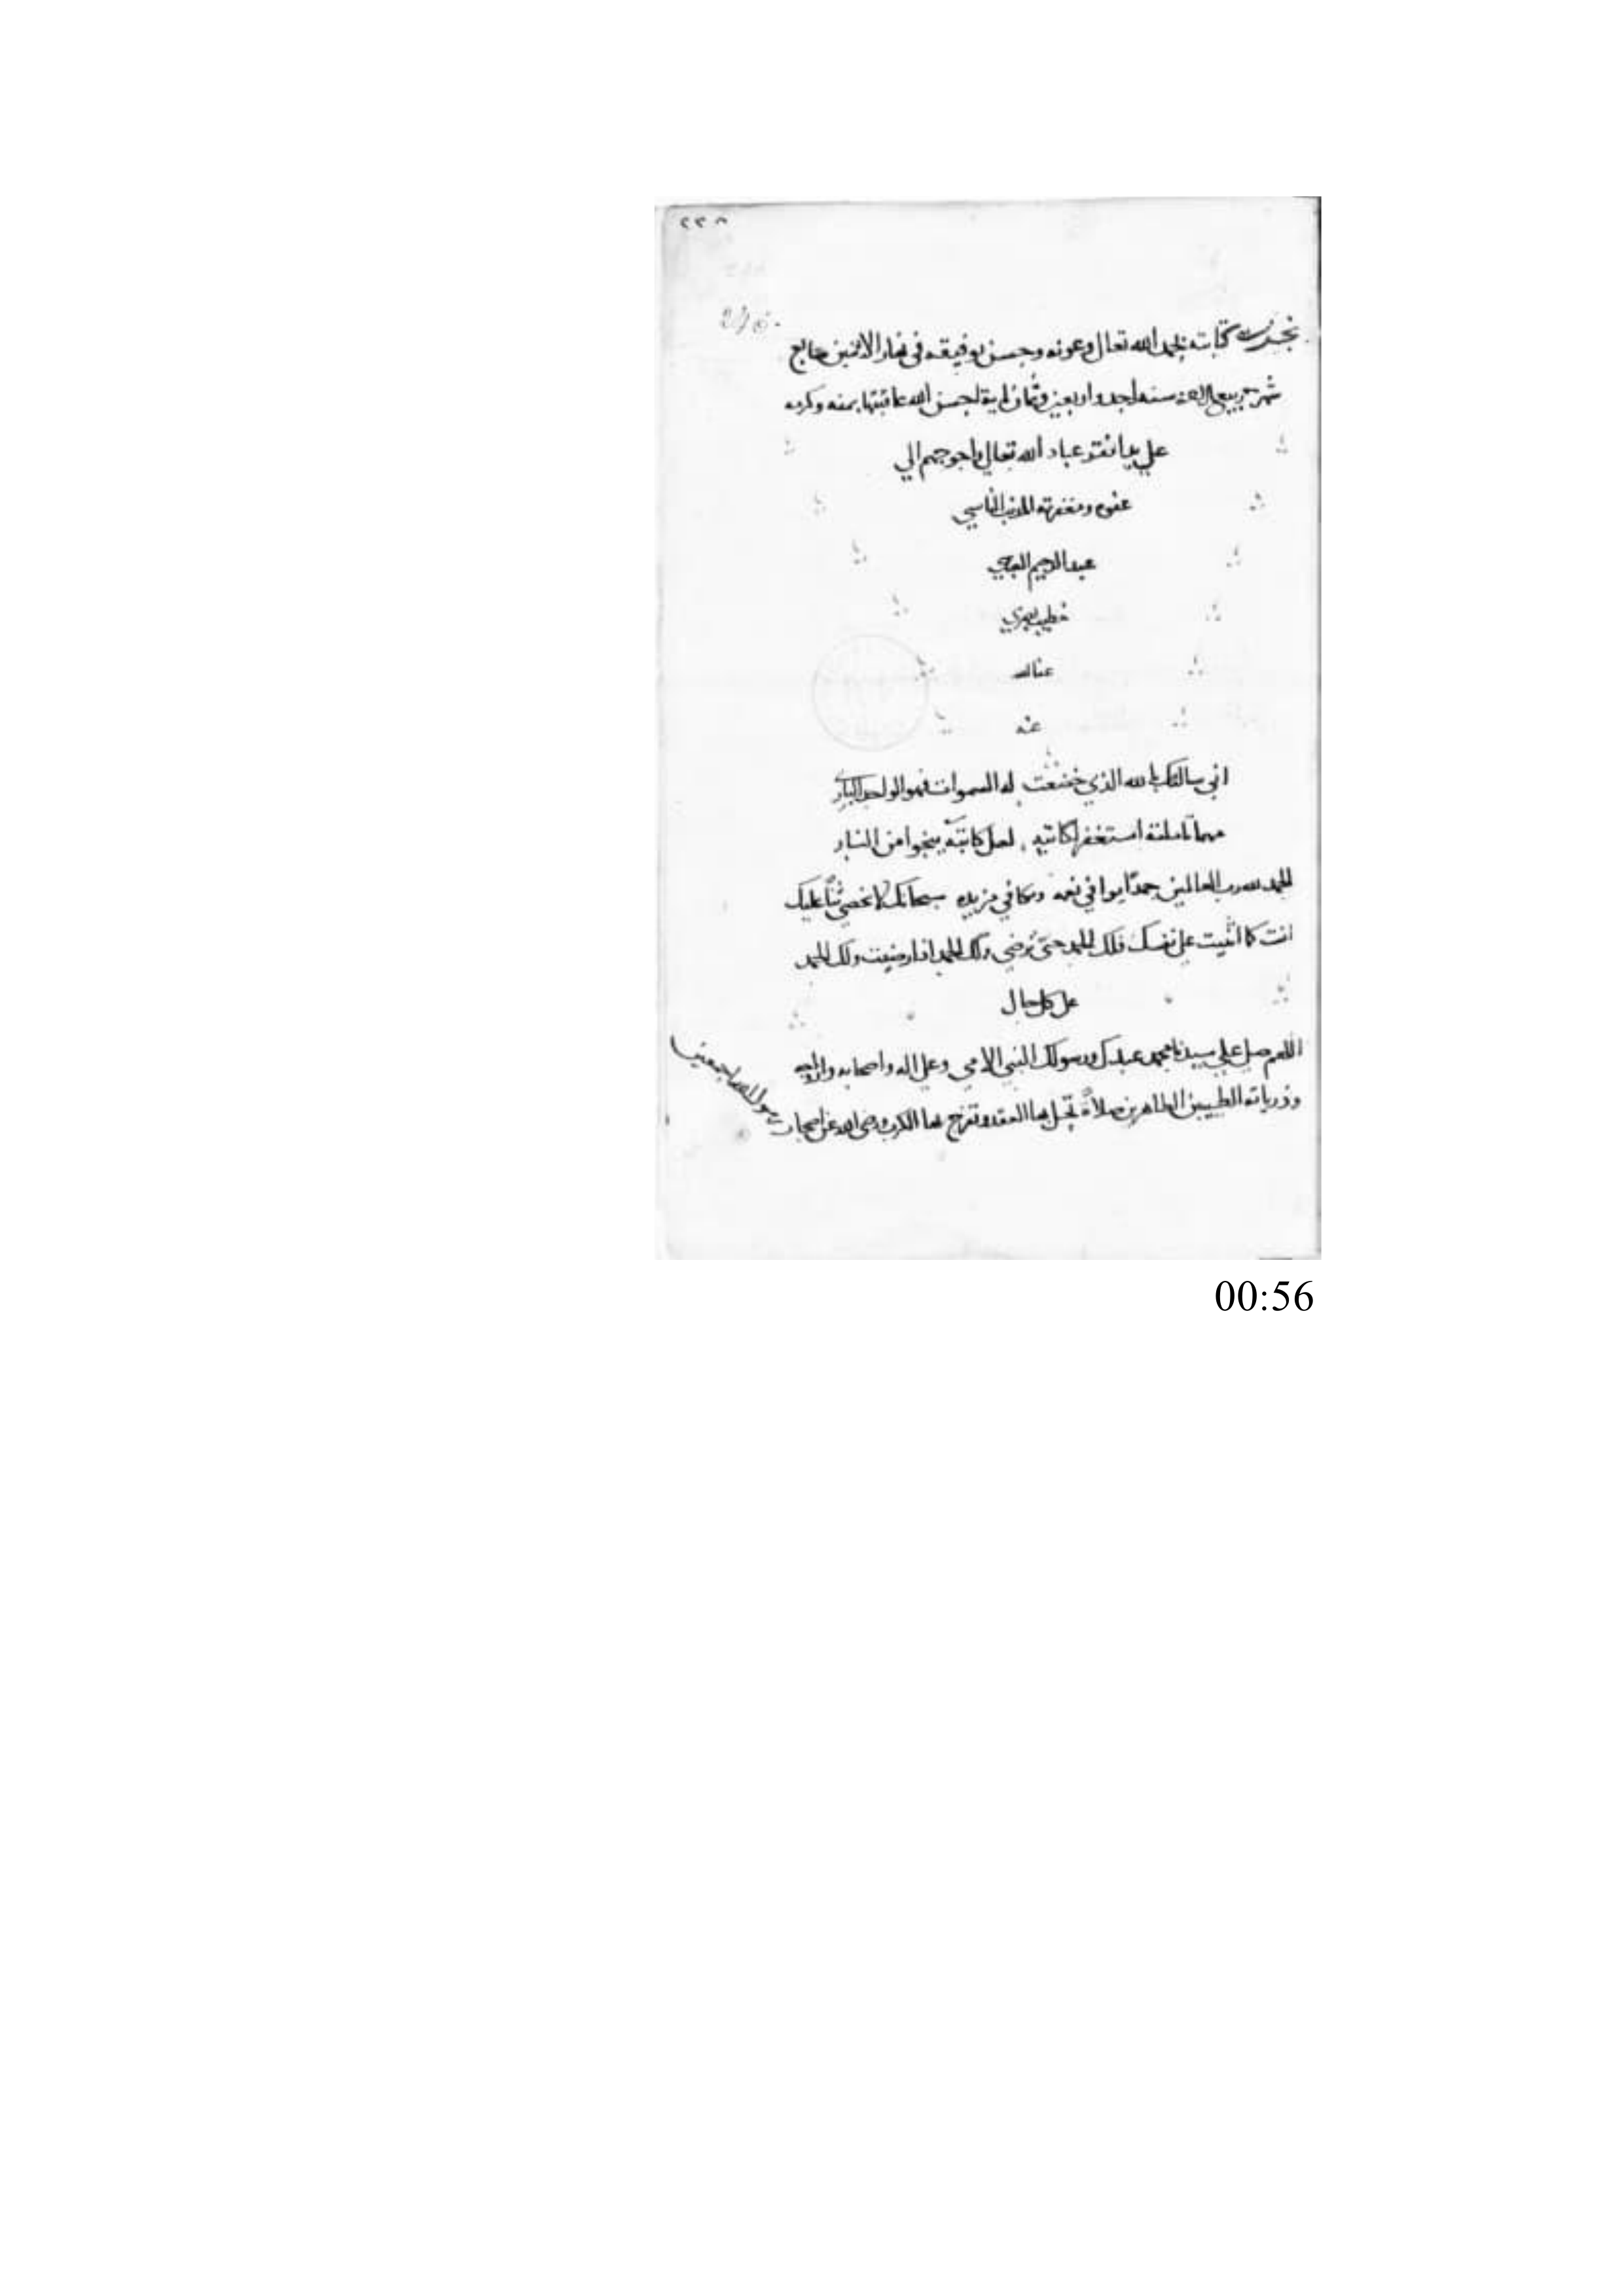 ٢٢٨
نجزت كتابته بحمد الله تعالى وعونه وحسن توفيقه في نهار الاثنين رابع
شهر ربيع سنة احد واربعين وثمان ماية احسن الله عاقبتها بمنه وكرمه
علي يد افقر عباد الله تعالى واحوجهم الي
عفوه ومغفرته المذنب الناسي
عبد الرحيم
خطيب
عفا الله
عنه
اني سالتك بالله الذي خضعت له السموات فهو الواحد الباري
مهما تاملته استغفر لكاتبه لعل كاتبه ينجوا من النار
الحمد لله رب العالمين حمدًا يوافي نعمه ويكافي مزيده سبحانك لا نحصي ثناً عليك
انت كما اثنيت على نفسك فلك الحمد حتى ترضي ولك الحمد اذا رضيت ولك الحمد
على كل حال
اللهم صل علي سيدنا محمد عبدك ورسولك النبي الامي وعلى اله واصحابه وازواجه
وذرياته الطيبين الطاهرين صلاةً تحل بها العقد وتفرج بها الكرب ورضي الله عن اصحاب رسول الله اجمعين
00:56